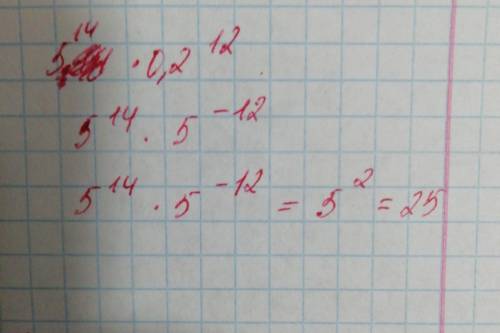 5¹⁴ · 0,2¹²
5¹⁴ · 5⁻¹²
5¹⁴ · 5⁻¹² = 5² = 25